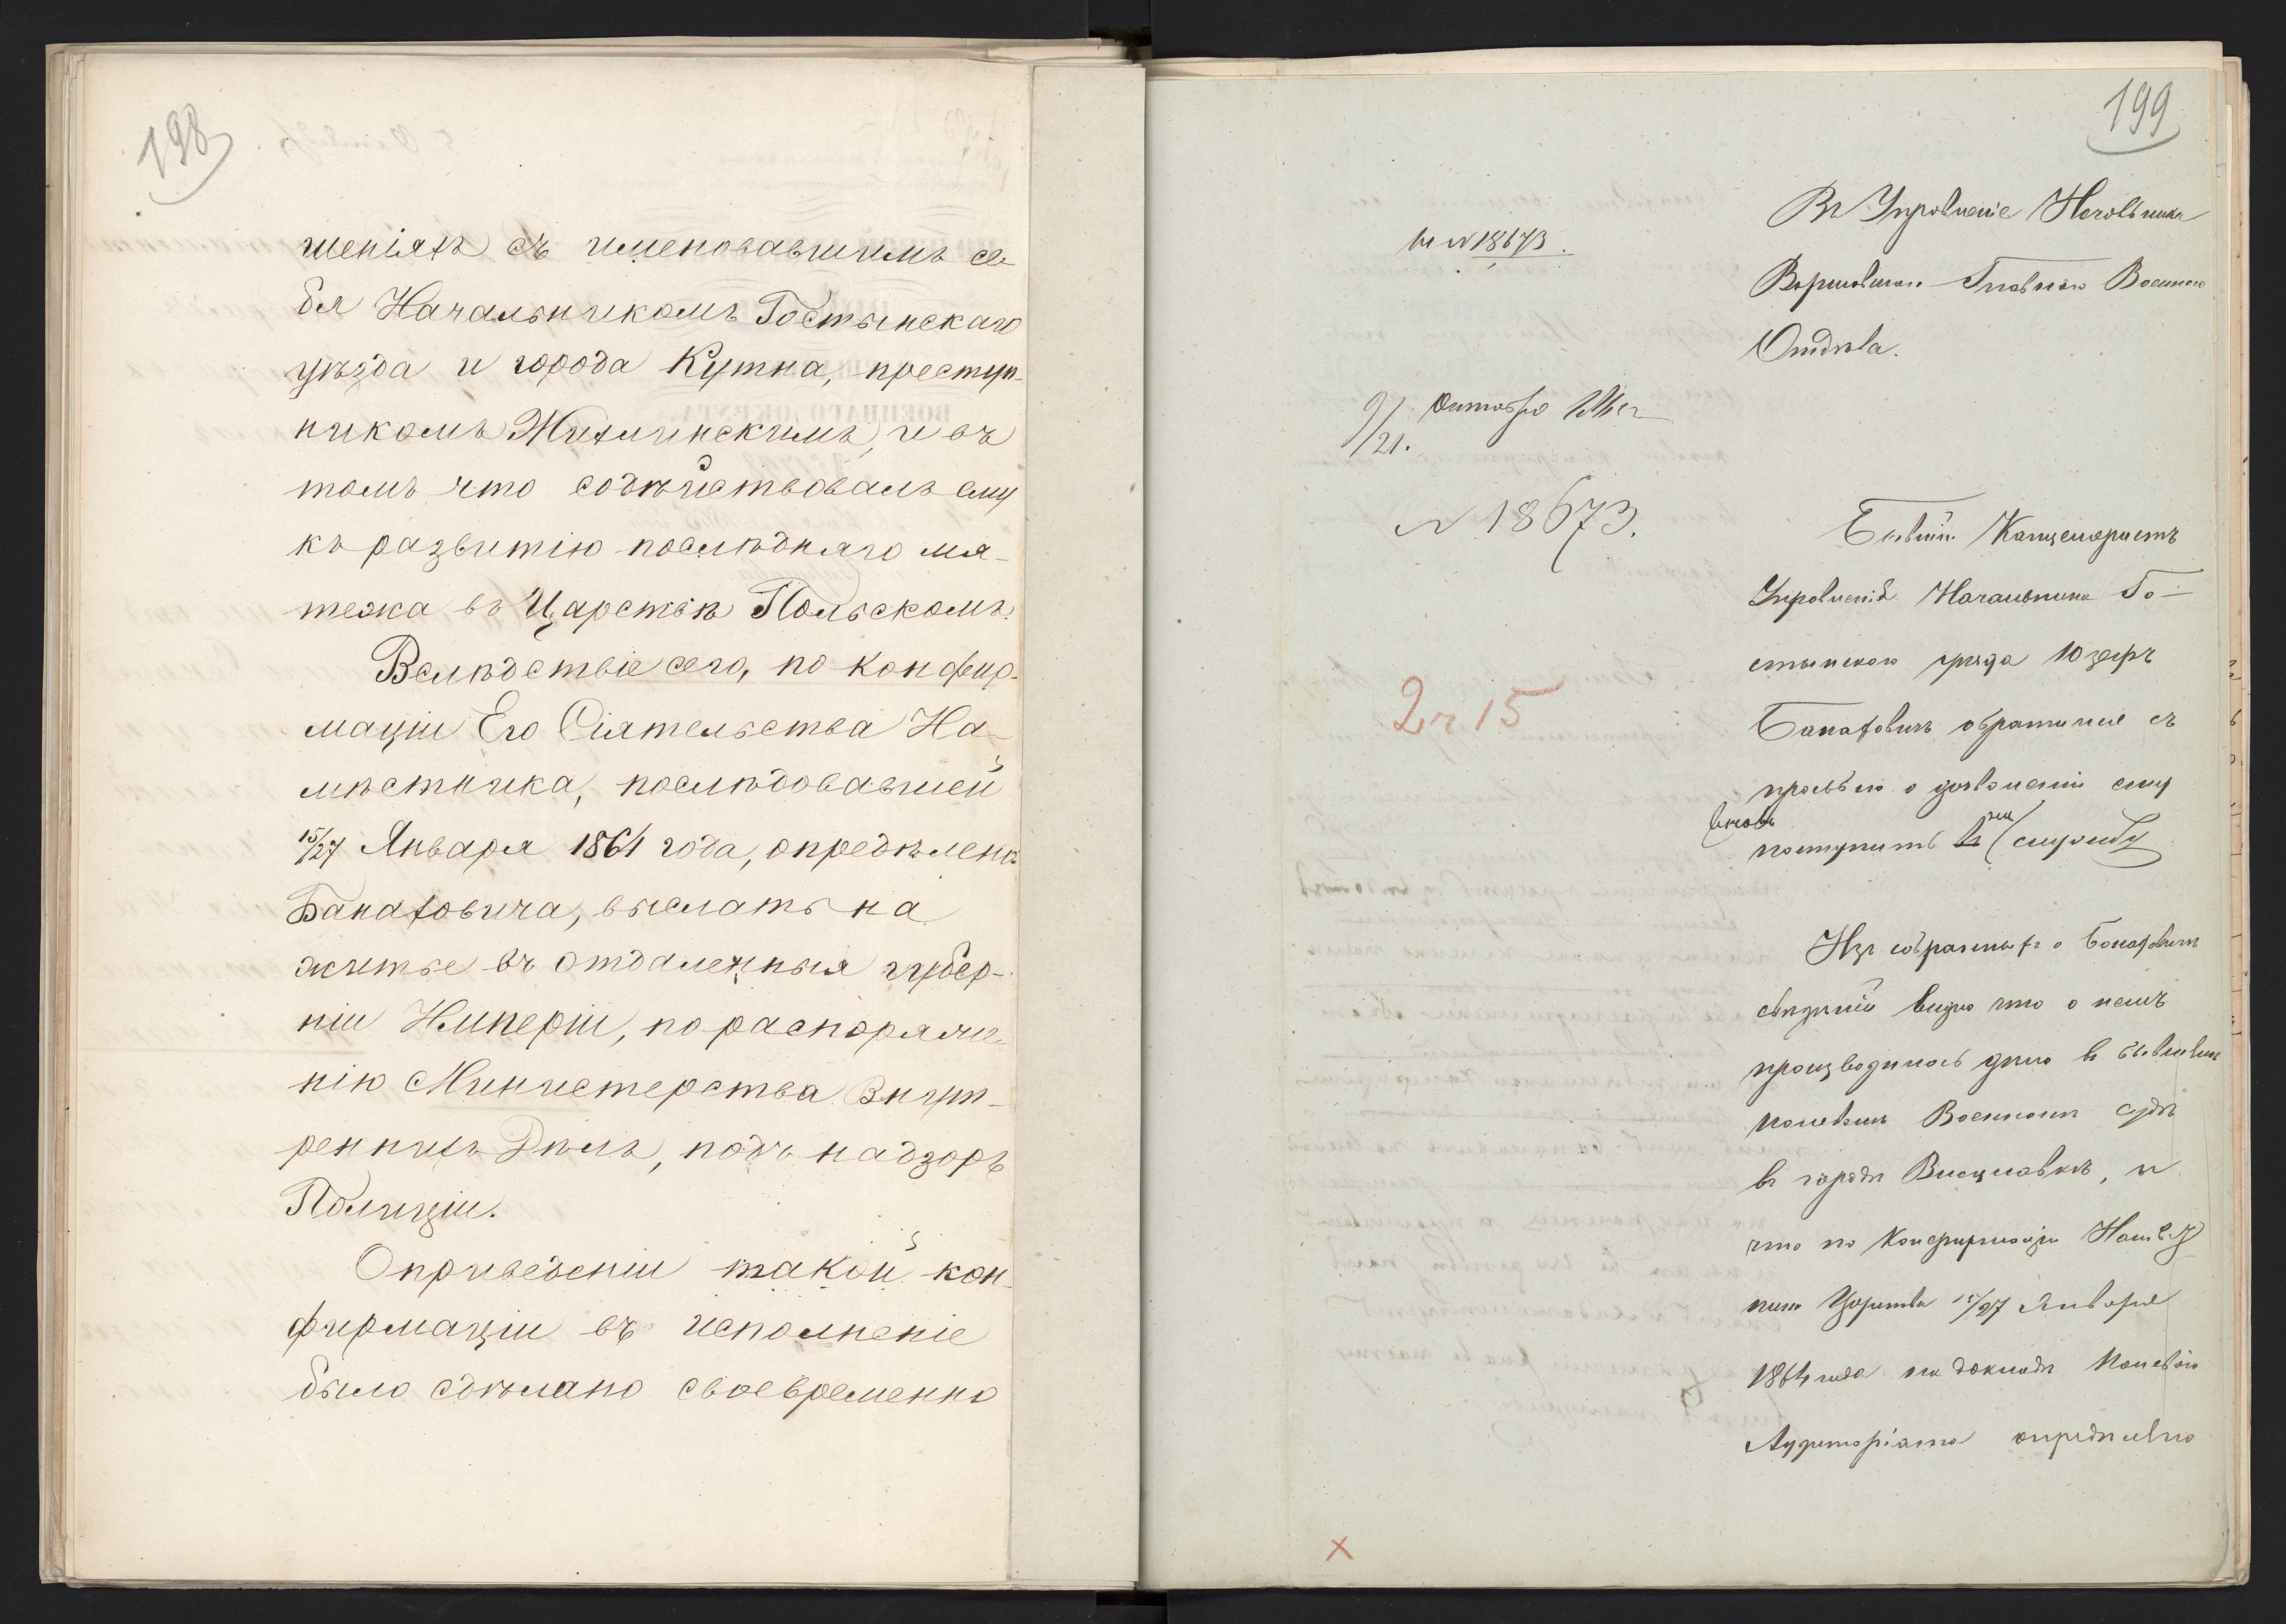 198
шеніяхъ съ именовавшимъ се-
бя Начальникомъ Гостынскаго
уѣзда и города Кутна, преступ-
никомъ Жихлинскимъ, и въ
томъ что содѣйствовалъ ему
къ развитію послѣдняго мя-
тежа въ Царствѣ Польскомъ.
Вслѣдствіе сего, по конфир-
маціи Его Сіятельства На-
мѣстника, послѣдовавшей
15/27 Января 1864 года, опредѣлено
Банаховича, выслать на
житье въ отдаленныя губер-
ніи Имперіи, по распоряже-
нію Министерства Внут-
реннихъ Дѣлъ, подъ надзоръ
Полиціи.
О приведеніи такой кон-
фирмаціи въ исполненіе
было сдѣлано своевременно
199
Въ Управленіе Начальника
Варшавскаго Главнаго Военнаго
Отдѣла.
на № 18673.
9/21. Октября
№ 18673.
2 ч 15
Бывшій Канцеляристъ
Управленія Начальника Го-
стынскаго уѣзда Юзефъ
Банаховичъ обратился съ
просьбою о дозволеніи ему
вновь
поступить на службу
Изъ собранныхъ о Банаховичѣ
свѣдѣній видно что о немъ
производилось дѣло въ бывшемъ
полевомъ Военномъ судѣ
въ городѣ Влоцлавкѣ, и
что по конфирмаціи Намѣст
ника Царства 15/27 Января
1864 года на докладѣ Полеваго
Аудиторіата опредѣлено